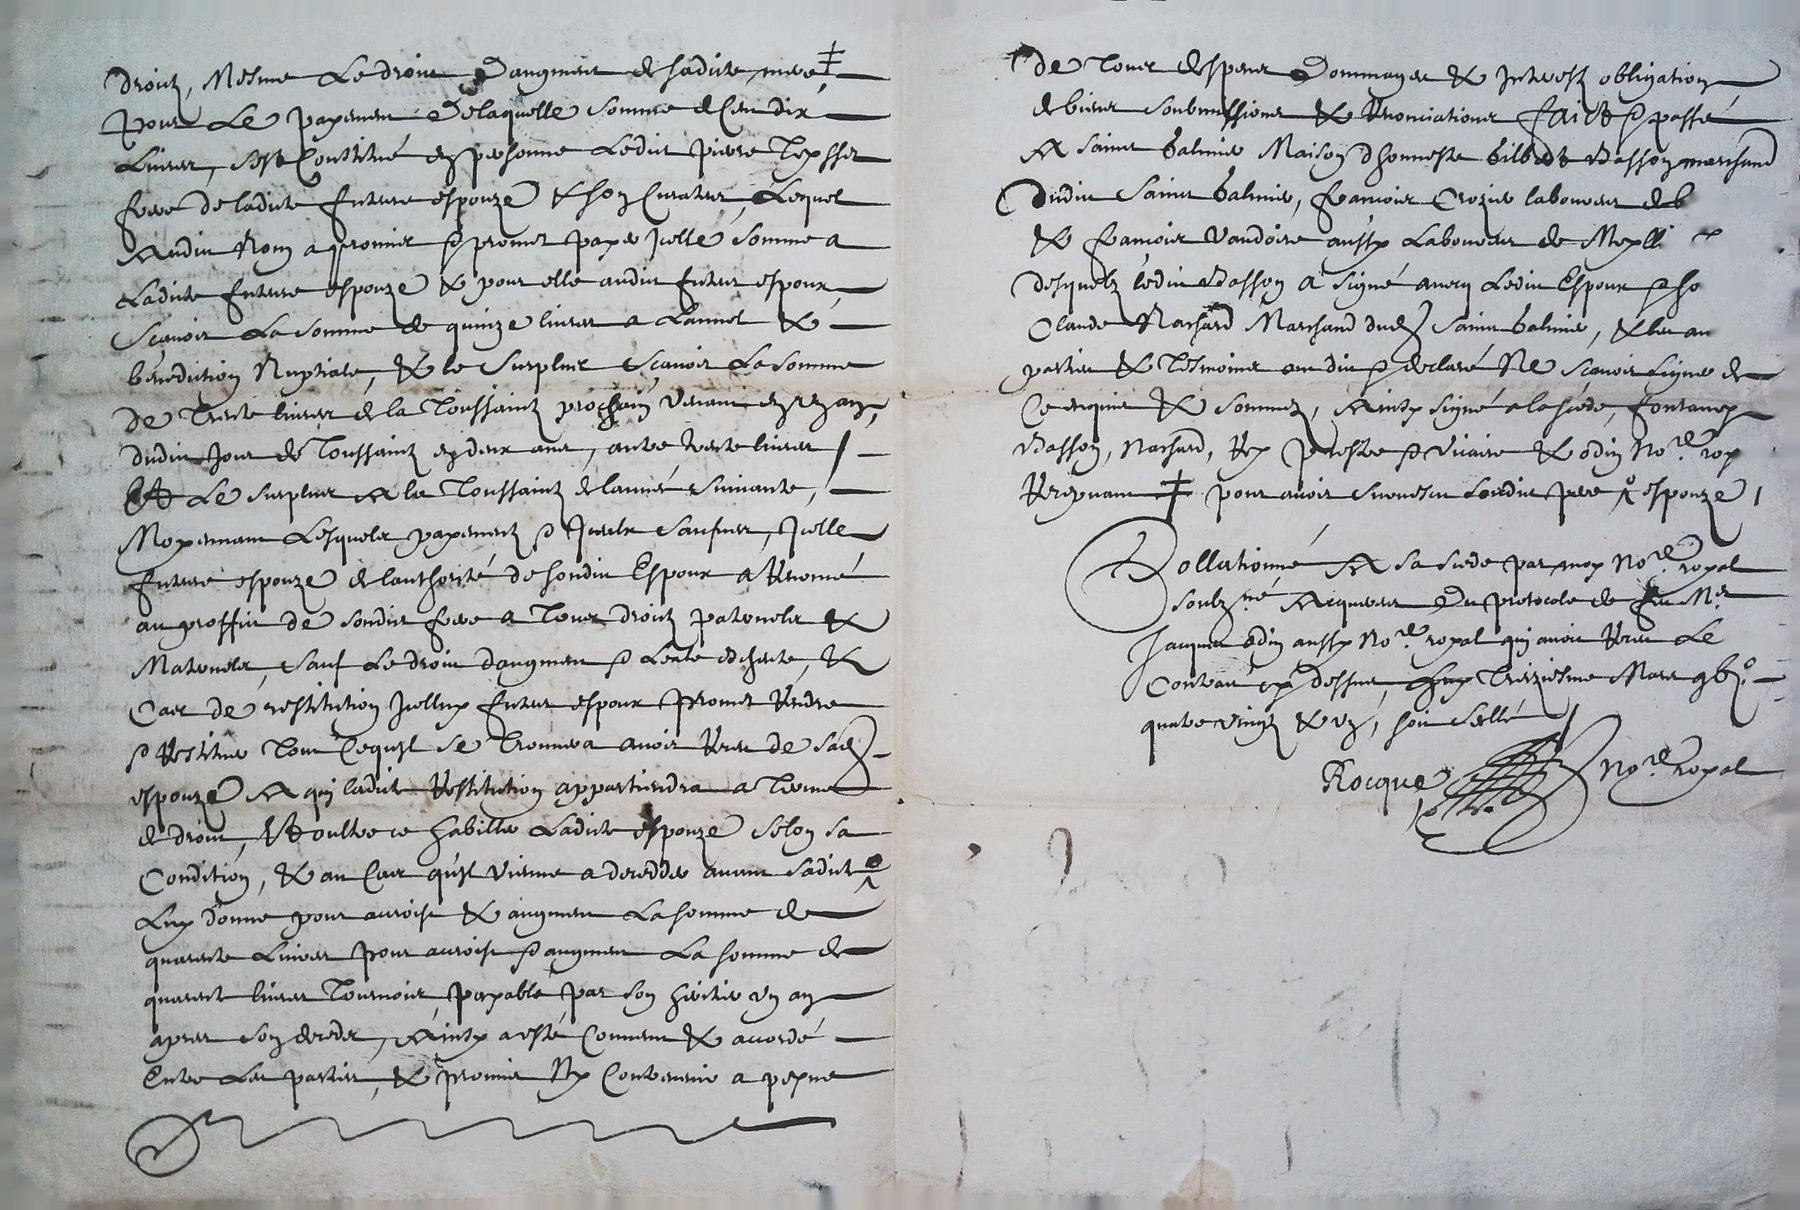 droictz, Mesme Le droict Daugment de sadicte mere ‡
pour Le payement Delaquelle somme de Cent dix
Livres, s'est Constitué en personne Ledict pierre Teyssot
frere de ladicte future espouze & son Curateur, Lequel
Audict Nom a promis & promet payer Icelle somme a
Ladicte future espouze & pour elle audict futur espoux,
Scavoir La somme de quinze livres a Lannel &
benediction Nuptiale, & le surplus scavoir La somme
de Trente livres de la Toussainctz prochain venant en ung an,
dudict Jour de Toussainctz en deux ans, autre trente livres
Et Le surplus A la Toussainctz de lannée suivante,
Moyennant Lesquelz payementz & Iceulx saufues, Icelle
future espouze de lauthorité de sondict Espoux a Renoncé
au proffict de sondict frere a Tous droictz paternelz &
Maternelz, sauf Le droict daugment & Leale escheute, &
Cas de restitution Icelluy futur espoux Promet Rendre
& Restituer Tout Ce quil se Trouvera avoir Receu de sad
espouze A qui ladicte Restitution appartiendra a Terme
de droict, Et oultre ce habiller Ladicte espouze selon sa
Condition, & au Cas quil vienne a decedder avant sadicte
Luy donne pour accroist & augment La somme de
quarente Livres pour accroist & augment La somme de
quarente livres Tournois payable par son heritier un an
apres son deces, Ainsy a esté Convenu & accordé
Entre Les parties, & promis Ny Contrevenir a peyne
de Tous despens Dommages & Interestz obligation
de biens soubmissions & Renonciations faict & passé
A sainct Galmier Maison d'honneste Gilbert Basson marchand
Dudict Sainct Galmier, francois Crozier laboureur de
& francois Vandoire aussy Laboureur de
desquelz ledict Basson a signé avecq Ledict Espoux &
Claude Nachard Marchand dud Sainct Galmier, & les au
parties & Tesmoins ont dict & declaré Ne scavoir signer de
Ce enquis & sommez, Ainsy signé a la scede, fontaney
Basson, Nachard, Rey Prestre & vicaire & odin No.re roy
Recepvant ‡ pour avoir survescu sondict pere espouze
Collationné A sa scede par moy No.re royal
soubz.né Acquereur Du protocole de feu M.e
Jacques odin aussy No.re royal qui avoit Receu Le
Contract cy dessus, Ce Treiziesme Mars
quatre vingtz & un, soict scellé
Rocque No.re royal